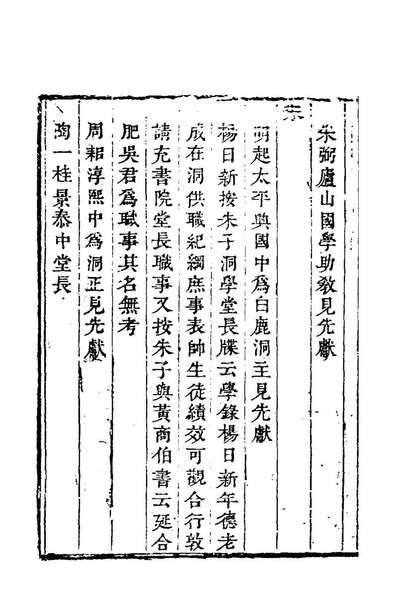 宋
朱弼廬山國學助敎見先獻
明起太平興國中爲白鹿洞主見先獻
楊日新按朱子洞學堂長牒云學錄楊日新年德老
成在洞供職紀綱庶事表帥生徒績效可觀合行敦
請充書院堂長職事又按朱子與黃商伯書云延合
肥吳君爲職事其名無考
周耜淳熙中爲洞正見先獻
陶一桂景泰中堂長